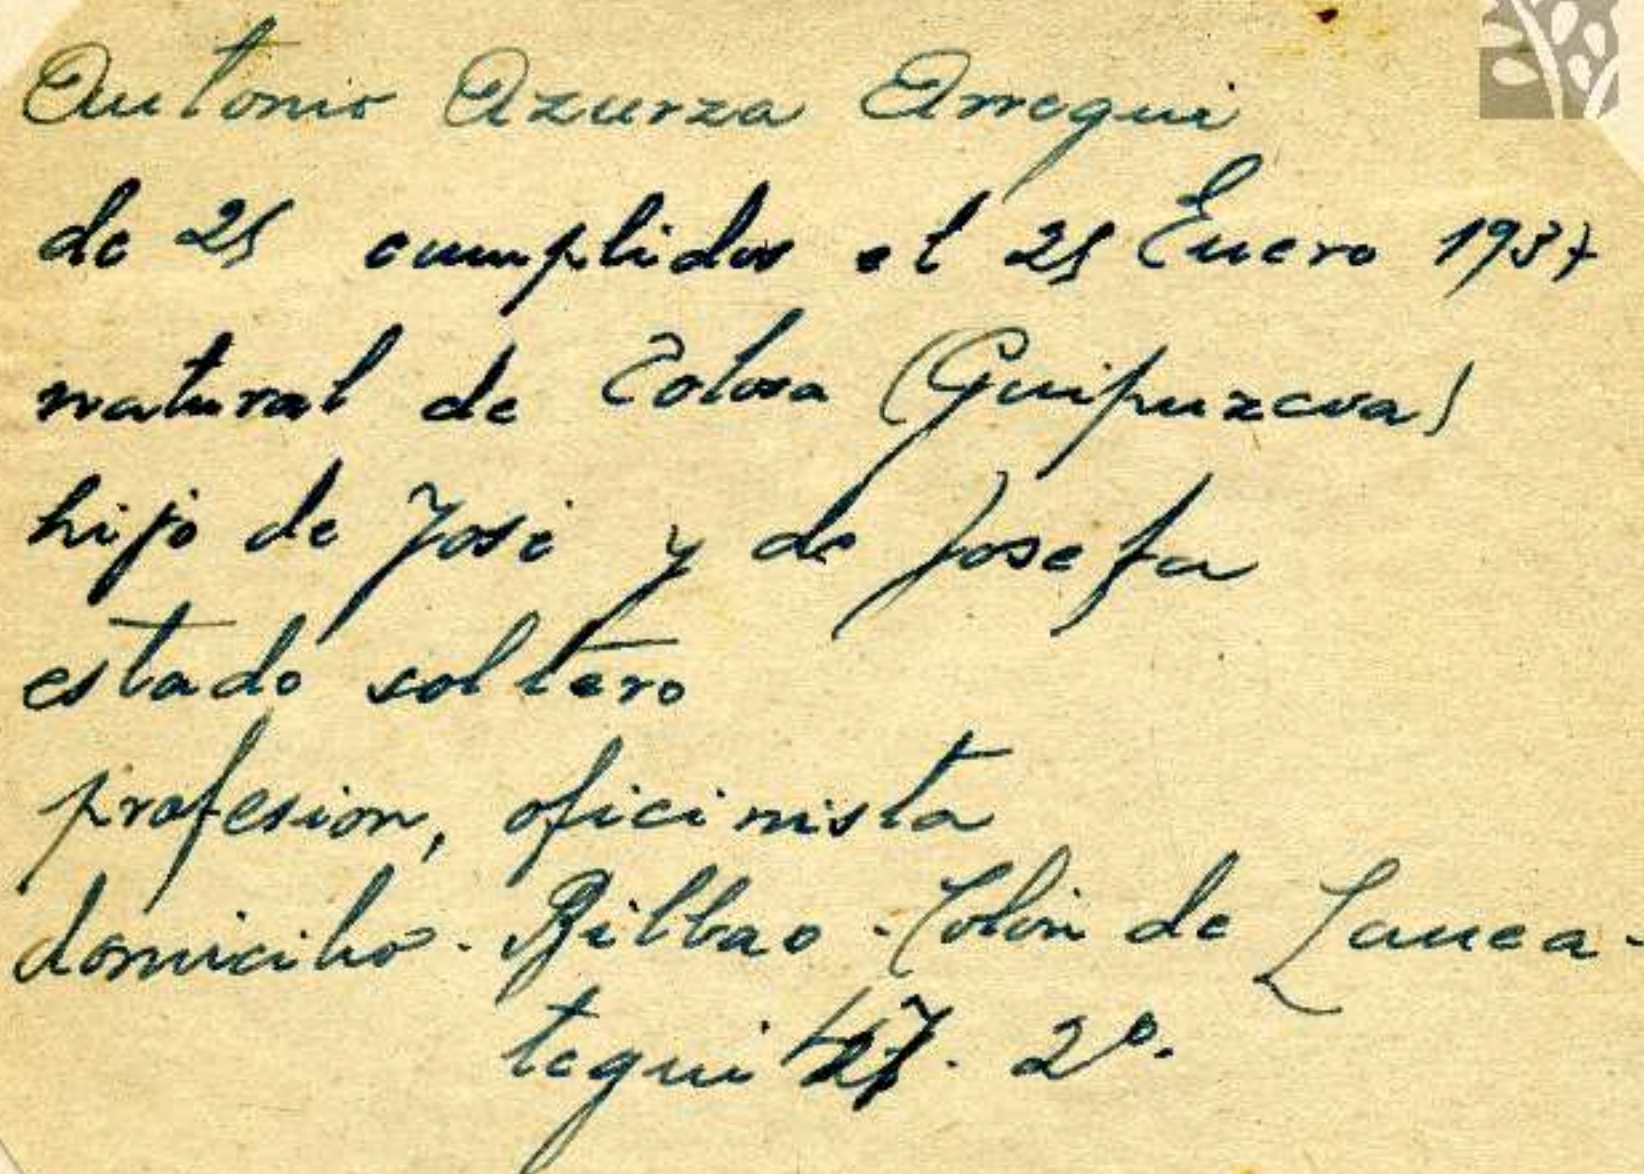 Antonio Azurza Arregui
de 25 cumplidos el 25 Enero 1937
natural de Tolosa (Guipuzcoa)
hijo de José y de Josefa
estado soltero
profesion, oficinista
domicilio - Bilbao - Colón de Larrea-
tegui 2º.